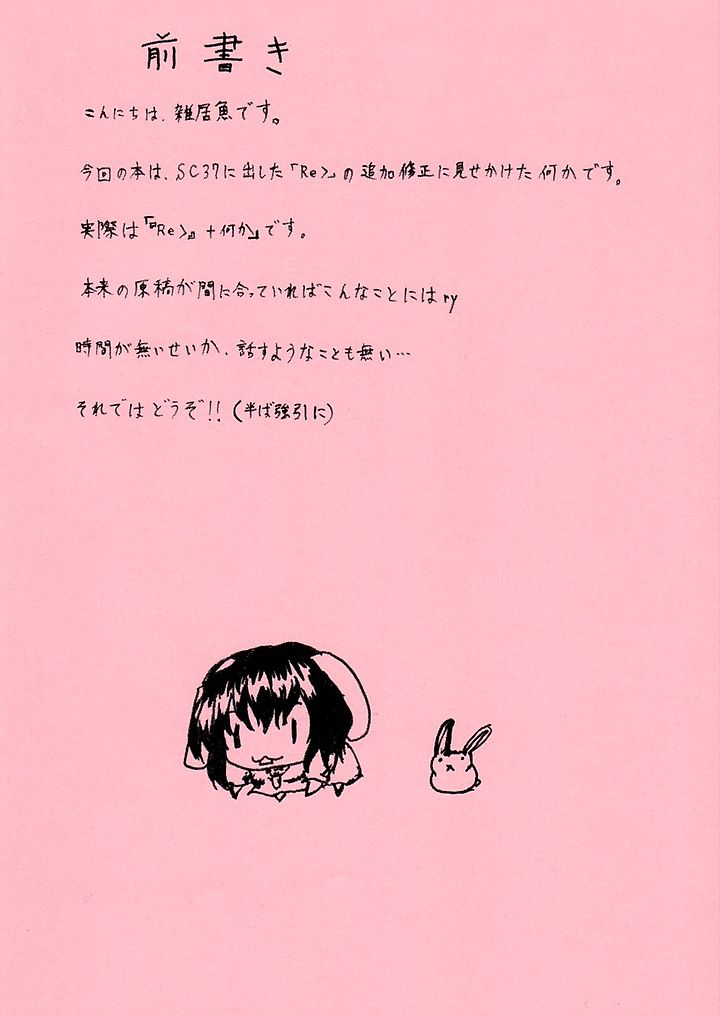 前書き
こんにちは、雑居魚です。
今回の本は、SC37に出した「Re>」の追加修正に見せかけた何かです。
実際は『「Re>」+何か』です。
本来の原稿が間に合っていればこんなことにはry
時間が無いせいか、話すようなことも無い…
それではどうぞ!!(半ば強引に)